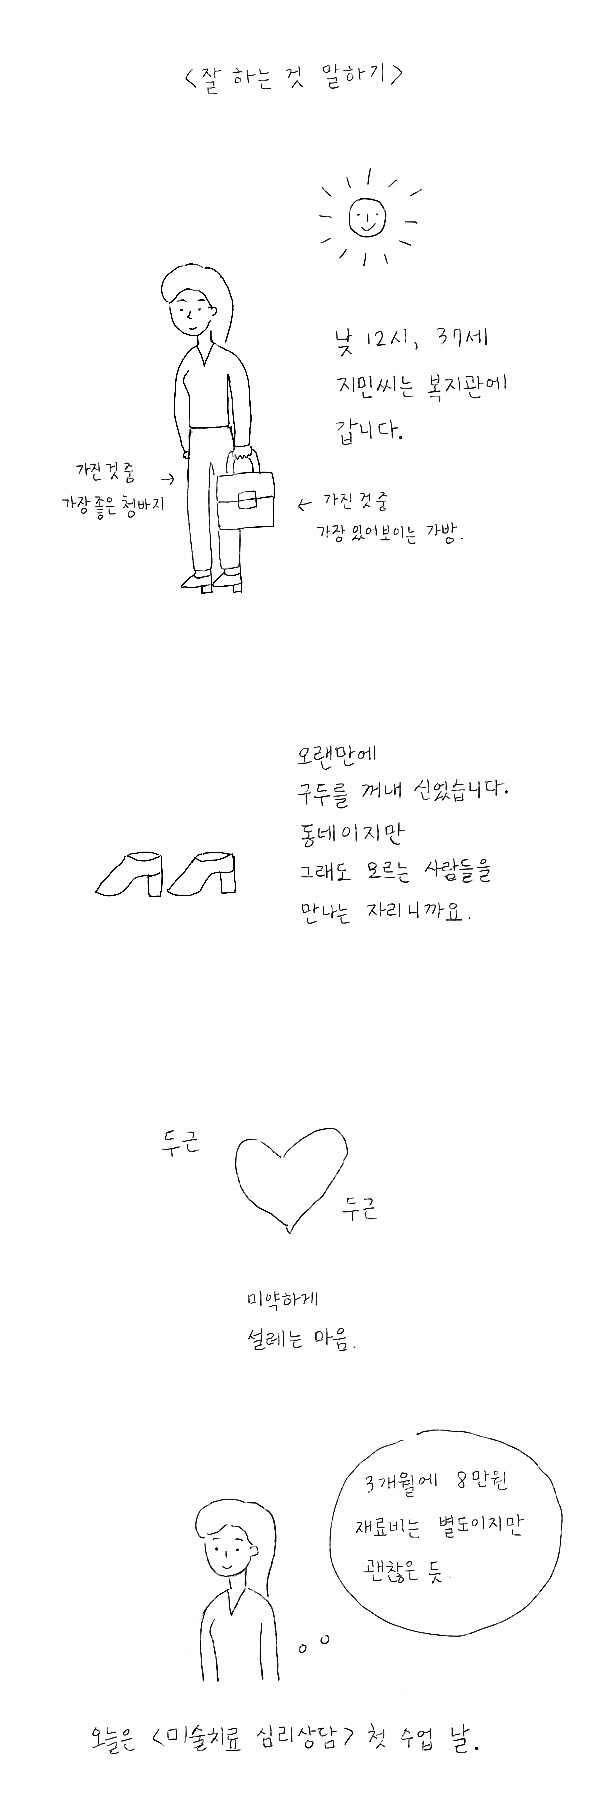 <잘 하는 것 말하기>
낮 12시, 37세
지민씨는 복지관에
갑니다.
가진 것 중
가장 좋은 청바지
가진 것 중
가장 있어보이는 가방.
오랜만에
구두를 꺼내 신었습니다.
동네이지만
그래도 모르는 사람들을
만나는 자리니까요.
두근
두근
미약하게
설레는 마음.
3개월에 8만원
재료비는 별도이지만
괜찮은 듯.
오늘은 <미술치료 심리상담> 첫 수업 날.